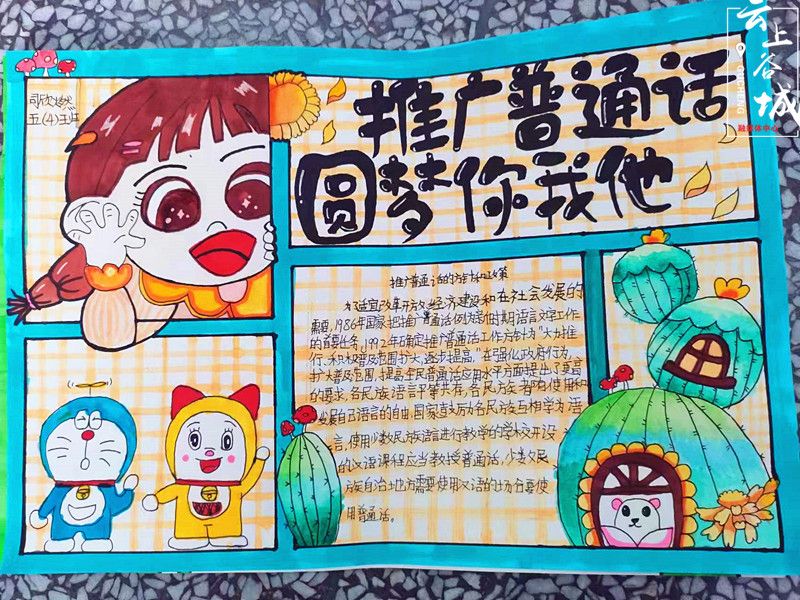 云上谷城
GUCHENG
融媒体中心
司欣燃
五(4)班
推广普通话
圆梦你我他
推广普通话的方针和政策
为适宜改革开放经济建设和在社会发展的
需要,1986年国家把推广普通话列为新时期语言文字工作
的首要任务,1992年确定推广普通话工作方针为"大力推
行、积极普及范围扩大,逐步提高。"在强化政府行为,
扩大普及范围,提高全民普通话应用水平方面提出了更高
的要求,各民族语言平等共存,各民族都有使用和
发展自己语言的自由,国家鼓励各民族互相学习语
言,使用少数民族语言进行教学的学校开设
的汉语课程应当教授普通话,少数民
族自治地方需要使用汉语的地方要使
用普通话。